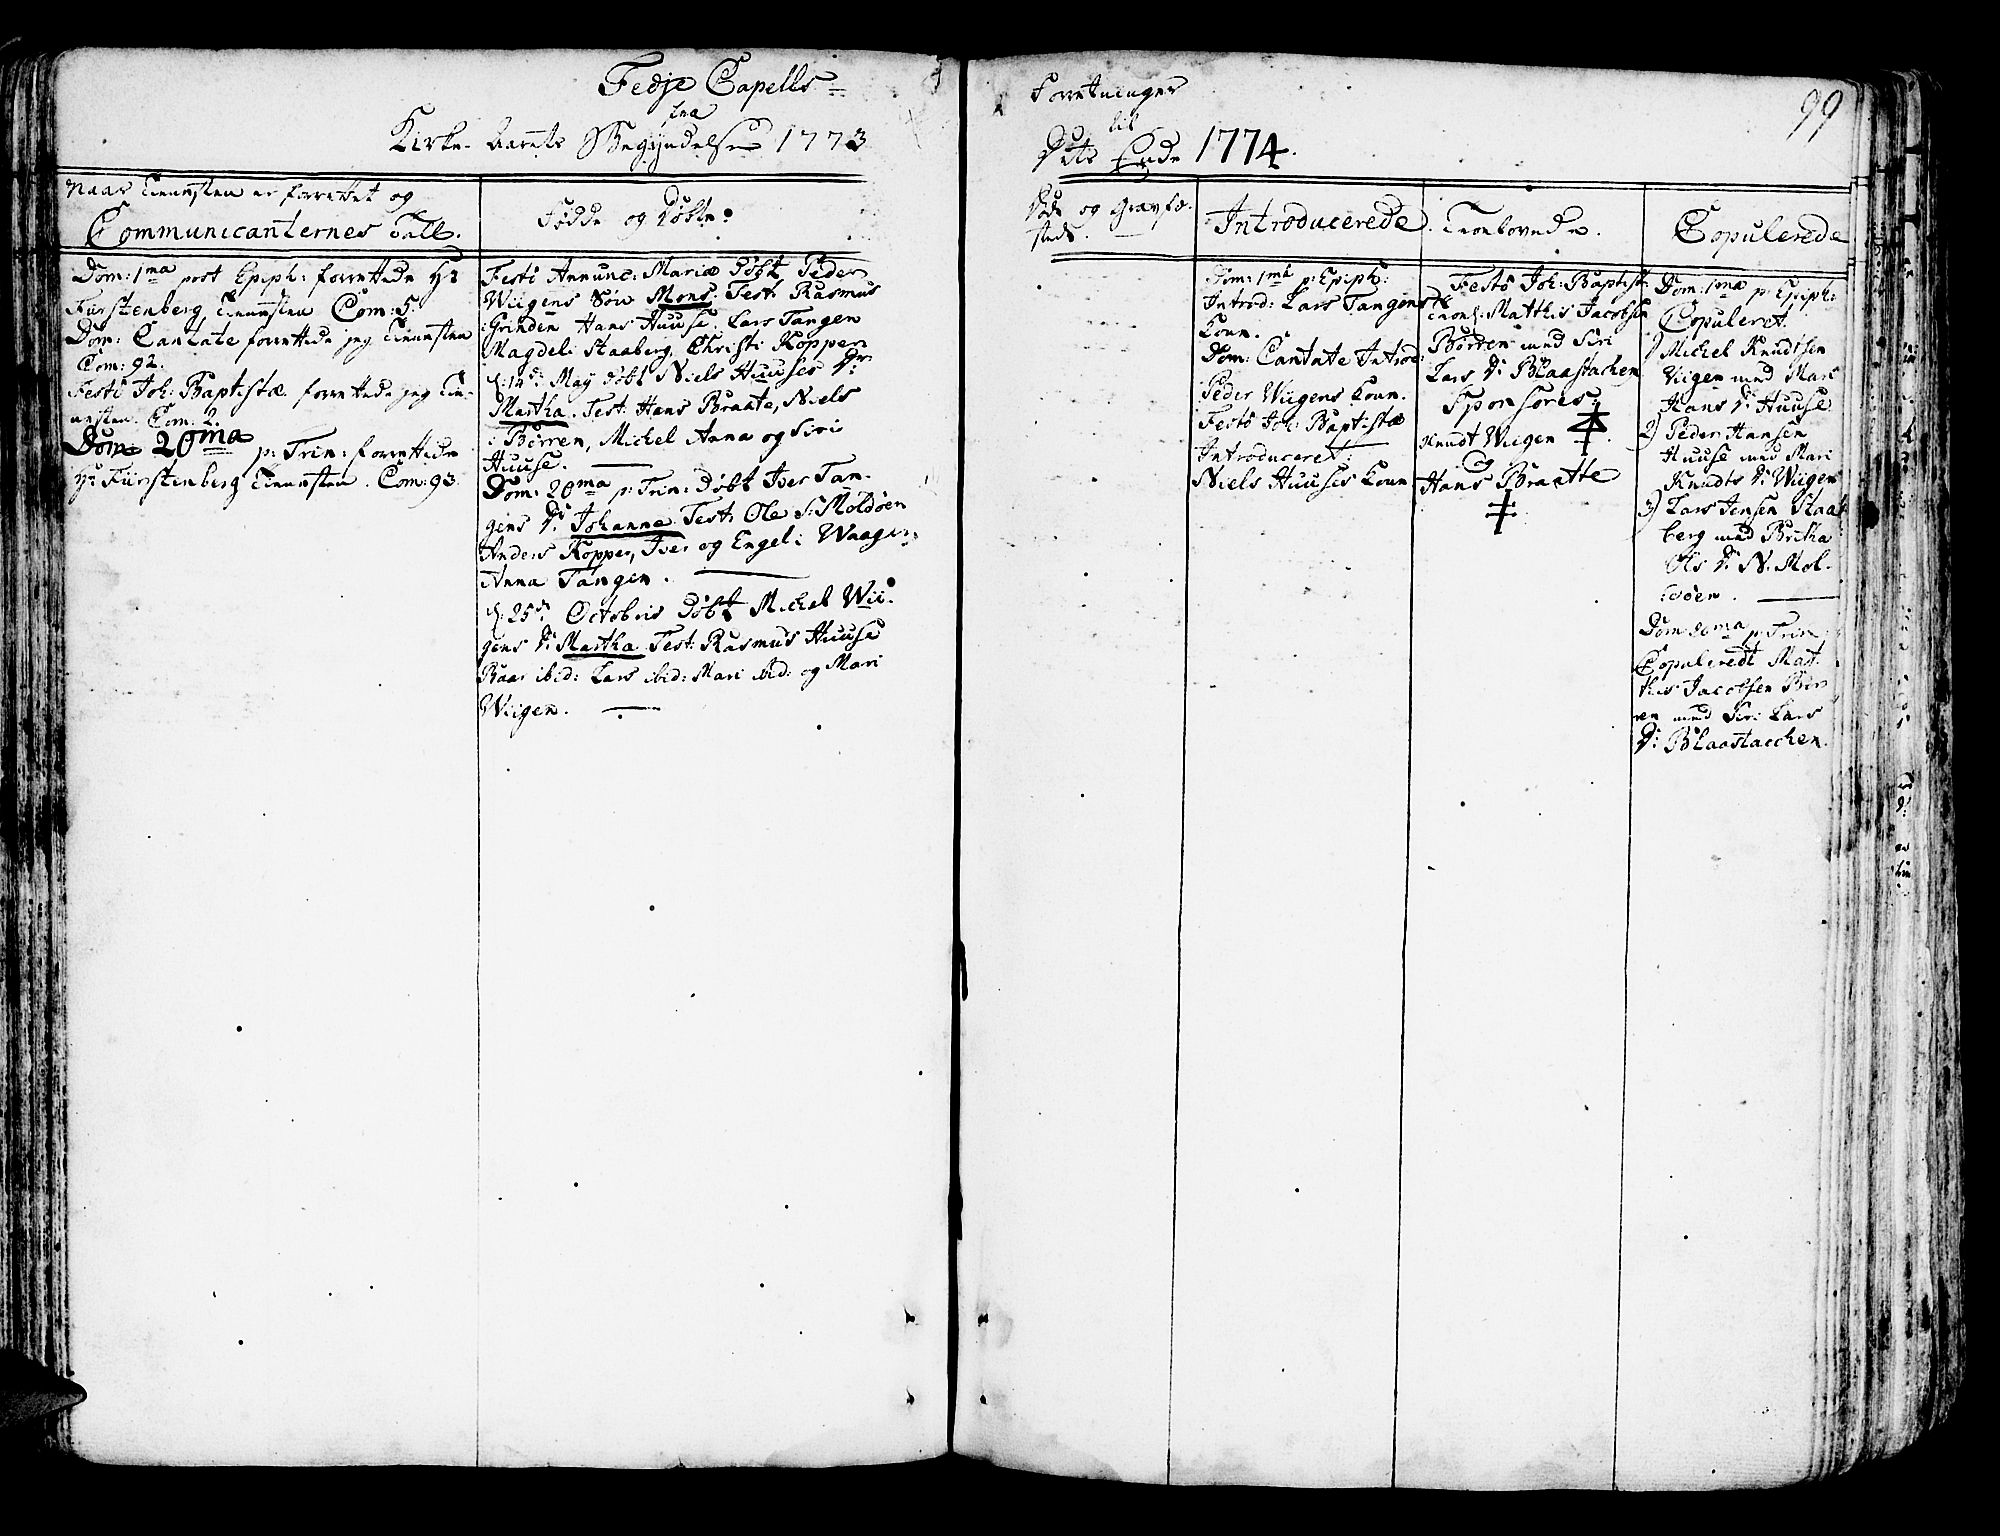 Fedje Capells
Forretninger
99
fra
Kirke-Aarets Begyndelse 1773
til
Dets Ende 1774.
Naar Tienesten er forrettet og
Communicanternes Tall.
Dom: 1ma post Epiph: forrettede Hr
Fürstenberg Tienesten Com: 5.
Dom: Cantate forrettede jeg Tienesten
Com: 92.
Festi Joh: Baptistæ forrettede jeg Tie-
nesten. Com: 2.
Dom 20ma p: Trin: forrettede
Hr Fürstenberg Tienesten. Com: 93.
Fødde og Døbte:
Festi Annunc: Mariæ døbt Peder
Wiigens Søn Mons. Test: Rasmus
Grinden Hans Huuse. Lars Tangen
Magdeli Staaberg. Christi Kopper
d: 14de May døbt Niels Huuses Dr:
Martha. Test: Hans Braate, Niels
Børren, Michel Anna og Siri
Huuse.
Dom: 20ma p: Trin: døbt Iver Tan-
gens D: Johanne. Test: Ole S: Moldøen
Anders Kopper, Iver og Engel: Waagen
Anna Tangen.
d: 25de Octobris døbt Michel Wii-
gens D: Martha. Test: Rasmus Huuse
Baar ibid: Lars ibid: Mari ibid: og Mari
Wiigen.
Døde og Gravfæ-
stede.
Introducerede
Dom: 1ma p: Epiph:
Introd: Lars Tangens
Koun.
Dom: Cantate Introd:
Peder Wiigens Koun.
Festo Joh: Baptistæ
Introduceret:
Niels Huuses Koun
Troelovede.
Festo Joh: Baptist:
Troel: Matthis Jacobsen
Børren med Siri
Lars D: Blaastachen
Sponsores
Knudt Wiigen
Hans Braatte
Copulerede
Dom: 1ma p: Epiph:
Copuleret.
1) Michel Knudtsen
Wiigen med Mari
Hans D: Huuse
2) Peder Hansen
Huuse med Mari
Knudts D: Wiigen
3) Lars Jensen Staa-
berg med Britha
Ols D: N: Mol-
døen.
Dom 20ma p: Trin
Copuleredt Mat-
this Jacobsen Bør-
ren med Siri Lars
D: Blaastacchen.